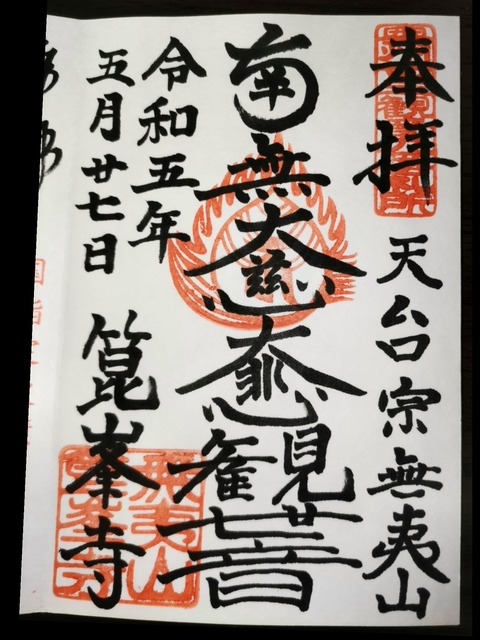 奉拝
天台宗無夷山
南無大慈大悲觀世音
令和五年
五月廿七日
箟峯寺